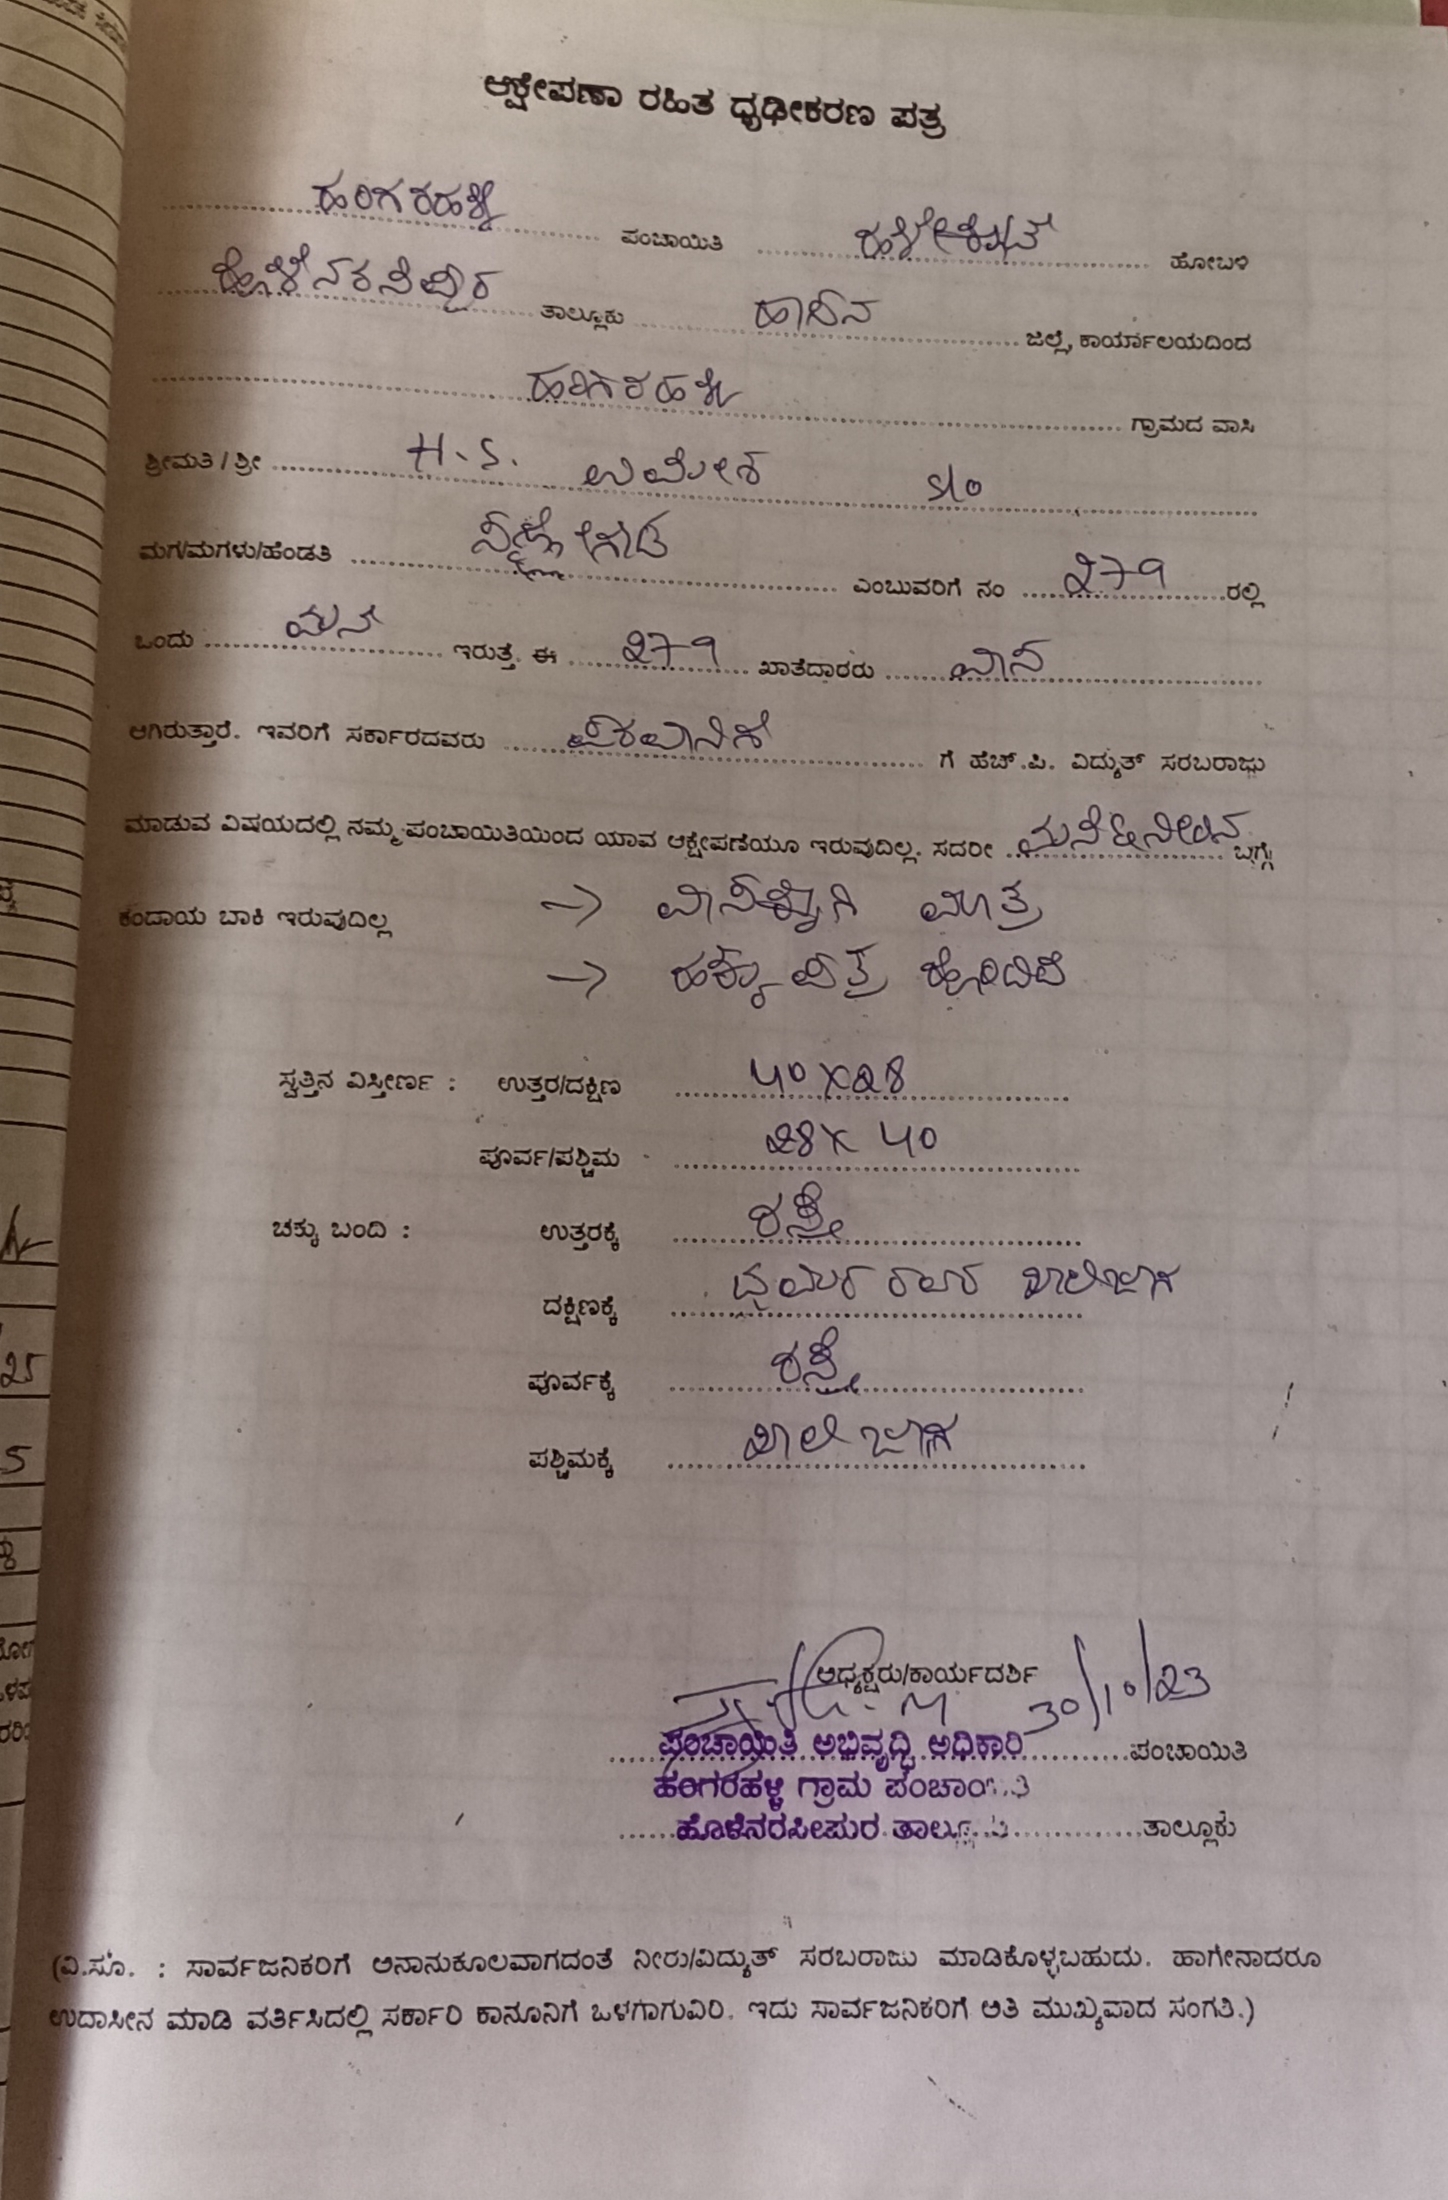 ಆಕ್ಷೇಪಣಾ ರಹಿತ ಧೃಢೀಕರಣ ಪತ್ರ
ಹಂಗರಹಳ್ಳಿ ಪಂಚಾಯಿತಿ ಹಳೇಕೋಟೆ ಹೋಬಳಿ
ಹೊಳೆನರಸೀಪುರ ತಾಲ್ಲೂಕು ಹಾಸನ ಜಿಲ್ಲೆ, ಕಾರ್ಯಾಲಯದಿಂದ
ಹಂಗರಹಳ್ಳಿ ಗ್ರಾಮದ ವಾಸಿ
ಶ್ರೀಮತಿ / ಶ್ರೀ H.S. ಉಮೇಶ S/o
ಮಗ/ಮಗಳು/ಹೆಂಡತಿ ಎಂಬುವರಿಗೆ ನಂ 279 ರಲ್ಲಿ
ಒಂದು ಮನೆ ಇರುತ್ತೆ. ಈ 279 ಖಾತೆದಾರರು ವಾಸ
ಆಗಿರುತ್ತಾರೆ. ಇವರಿಗೆ ಸರ್ಕಾರದವರು ಪರವಾನಿಗೆ ಗೆ ಹೆಚ್.ಪಿ. ವಿದ್ಯುತ್ ಸರಬರಾಜು
ಮಾಡುವ ವಿಷಯದಲ್ಲಿ ನಮ್ಮ ಪಂಚಾಯಿತಿಯಿಂದ ಯಾವ ಆಕ್ಷೇಪಣೆಯೂ ಇರುವುದಿಲ್ಲ. ಸದರೀ ಬಗ್ಗೆ
ಕಂದಾಯ ಬಾಕಿ ಇರುವುದಿಲ್ಲ → ವಾಸಕ್ಕಾಗಿ ಮಾತ್ರ
→ ಹಕ್ಕು ಪತ್ರ ಹೊಂದಿದೆ
ಸ್ವತ್ತಿನ ವಿಸ್ತೀರ್ಣ : ಉತ್ತರ/ದಕ್ಷಿಣ 40X28
ಪೂರ್ವ/ಪಶ್ಚಿಮ 28X40
ಚಕ್ಕು ಬಂದಿ : ಉತ್ತರಕ್ಕೆ ರಸ್ತೆ
ದಕ್ಷಿಣಕ್ಕೆ ಖಾಲಿಜಾಗ
ಪೂರ್ವಕ್ಕೆ ರಸ್ತೆ
ಪಶ್ಚಿಮಕ್ಕೆ ಖಾಲಿ ಜಾಗ
ಅಧ್ಯಕ್ಷರು/ಕಾರ್ಯದರ್ಶಿ 30/10/23
ಪಂಚಾಯಿತಿ ಅಭಿವೃದ್ಧಿ ಅಧಿಕಾರಿ ಪಂಚಾಯಿತಿ
ಹಂಗರಹಳ್ಳಿ ಗ್ರಾಮ ಪಂಚಾಯಿತಿ
ಹೊಳೆನರಸೀಪುರ ತಾಲ್ಲೂಕು ತಾಲ್ಲೂಕು
(ವಿ.ಸೂ. : ಸಾರ್ವಜನಿಕರಿಗೆ ಅನಾನುಕೂಲವಾಗದಂತೆ ನೀರು/ವಿದ್ಯುತ್ ಸರಬರಾಜು ಮಾಡಿಕೊಳ್ಳಬಹುದು. ಹಾಗೇನಾದರೂ
ಉದಾಸೀನ ಮಾಡಿ ವರ್ತಿಸಿದಲ್ಲಿ ಸರ್ಕಾರಿ ಕಾನೂನಿಗೆ ಒಳಗಾಗುವಿರಿ. ಇದು ಸಾರ್ವಜನಿಕರಿಗೆ ಅತಿ ಮುಖ್ಯವಾದ ಸಂಗತಿ.)